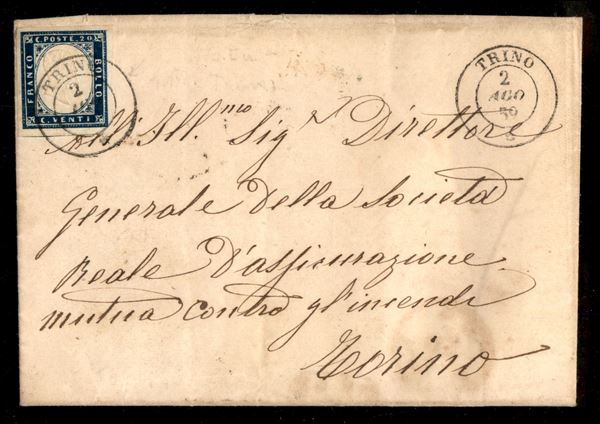 C. POSTE. 20
FRANCO
BOLLO
C. VENTI
TRINO
2
TRINO
2
AGO
56
All' Ill.mo Sig.r Direttore
Generale Della Società
Reale D'assicurazione
mutua contro gl'incendi
Torino